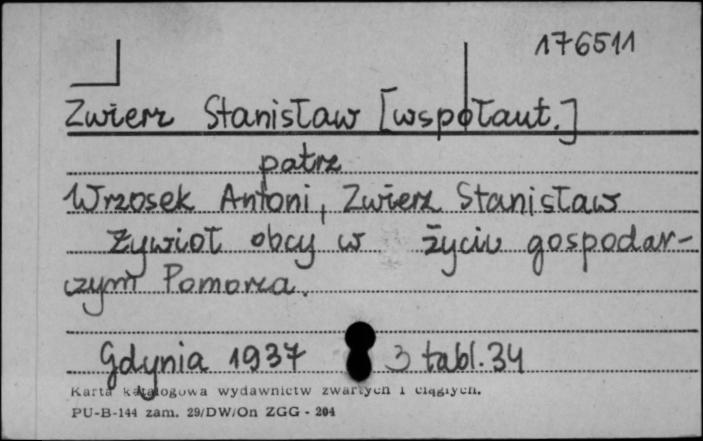 176511
Zwierz Stanisław [współaut.]
patrz
Wrzosek Antoni, Zwierz Stanisław
Żywioł obcy w życiu gospodar-
czym Pomorza.
Gdynia 1937 3 tabl. 34
Karta katalogowa wydawnictw zwartych i ciągłych.
PU-B-144 zam. 29/DW/On ZGG - 204